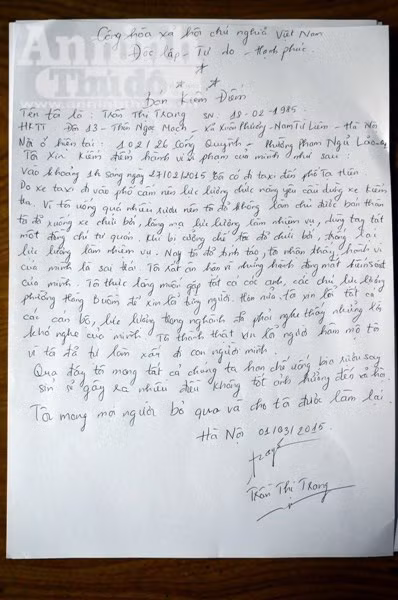 An ninh
Thủ đô
Cộng hòa xã hội chủ nghĩa Việt Nam
Độc lập - Tự do - Hạnh phúc
Bản Kiểm Điểm
Tên tôi là: Trần Thị Trang SN: 18-02-1985.
HKTT Đội 13 - Thôn Ngọc Mạch - Xã Xuân Phương - Nam Từ Liêm - Hà Nội
Nơi ở hiện tại: 102/26 Cống Quỳnh - Phường Phạm Ngũ Lão
Tôi xin kiểm điểm hành vi vi phạm của mình như sau
Vào khoảng 1h sáng ngày 27/02/2015 tôi có đi taxi đến phố Tạ Hiện
Do xe taxi đi vào phố cấm nên lực lượng chức năng yêu cầu dừng xe kiểm
tra. Vì tôi uống quá nhiều rượu nên tôi đã không làm chủ được bản thân
tôi đã xuống xe chửi bới, lăng mạ lực lượng làm nhiệm vụ, dùng tay tát
một đồng chí tự quản. Khi bị cưỡng chế tôi đã chửi bới, chống lại
lực lượng làm nhiệm vụ. Nay tôi đã tỉnh táo, tôi nhận thấy hành vi
của mình là sai trái. Tôi rất ân hận vì những hành động mất kiểm soát
của mình. Tôi thức lòng muốn gặp tất cả các anh, các chú lực lượng
phường Hàng Buồm để xin lỗi từng người. Hơn nữa tôi xin lỗi tất cả
các cán bộ, lực lượng trong nghành đã phải nghe thấy những lời
khó nghe của mình. Tôi thành thật xin lỗi người hâm mộ tôi
vì tôi đã tự làm xấu đi con người mình.
Qua đây tôi mong tất cả chúng ta hạn chế uống bia rượu say
sỉn sẽ gây ra nhiều điều không tốt ảnh hưởng đến xã hội
Tôi mong mọi người bỏ qua và cho tôi được làm lại.
Hà Nội 01/03/2015
Trần Thị Trang